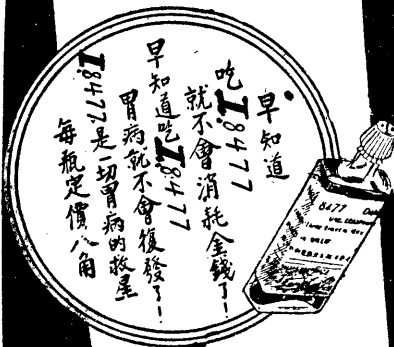 早知道
吃I.8477
就不會消耗金錢了！
早知道吃I.8477
胃病就不會復發了！
I.8477.是一切胃病的救星
每瓶定價八角
8477